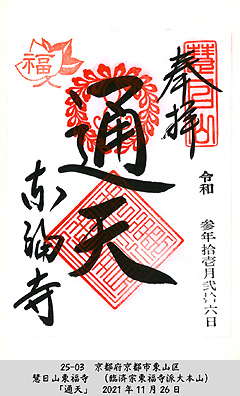 奉拝
慧日山
福
通天
東福寺
令和
参年拾壱月弐拾六日
25-03 京都府京都市東山区
慧日山東福寺 (臨済宗東福寺派大本山)
「通天」 2021年11月26日